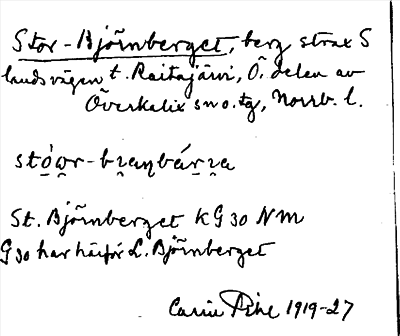 Stor-Björnberget, berg strax S
landsvägen t. Raitajärvi, Ö. delen av
Överkalix sn o. tg, Norrb. l.
St. Björnberget KG 30 NM
G 30 har härför L. Björnberget
1919-27